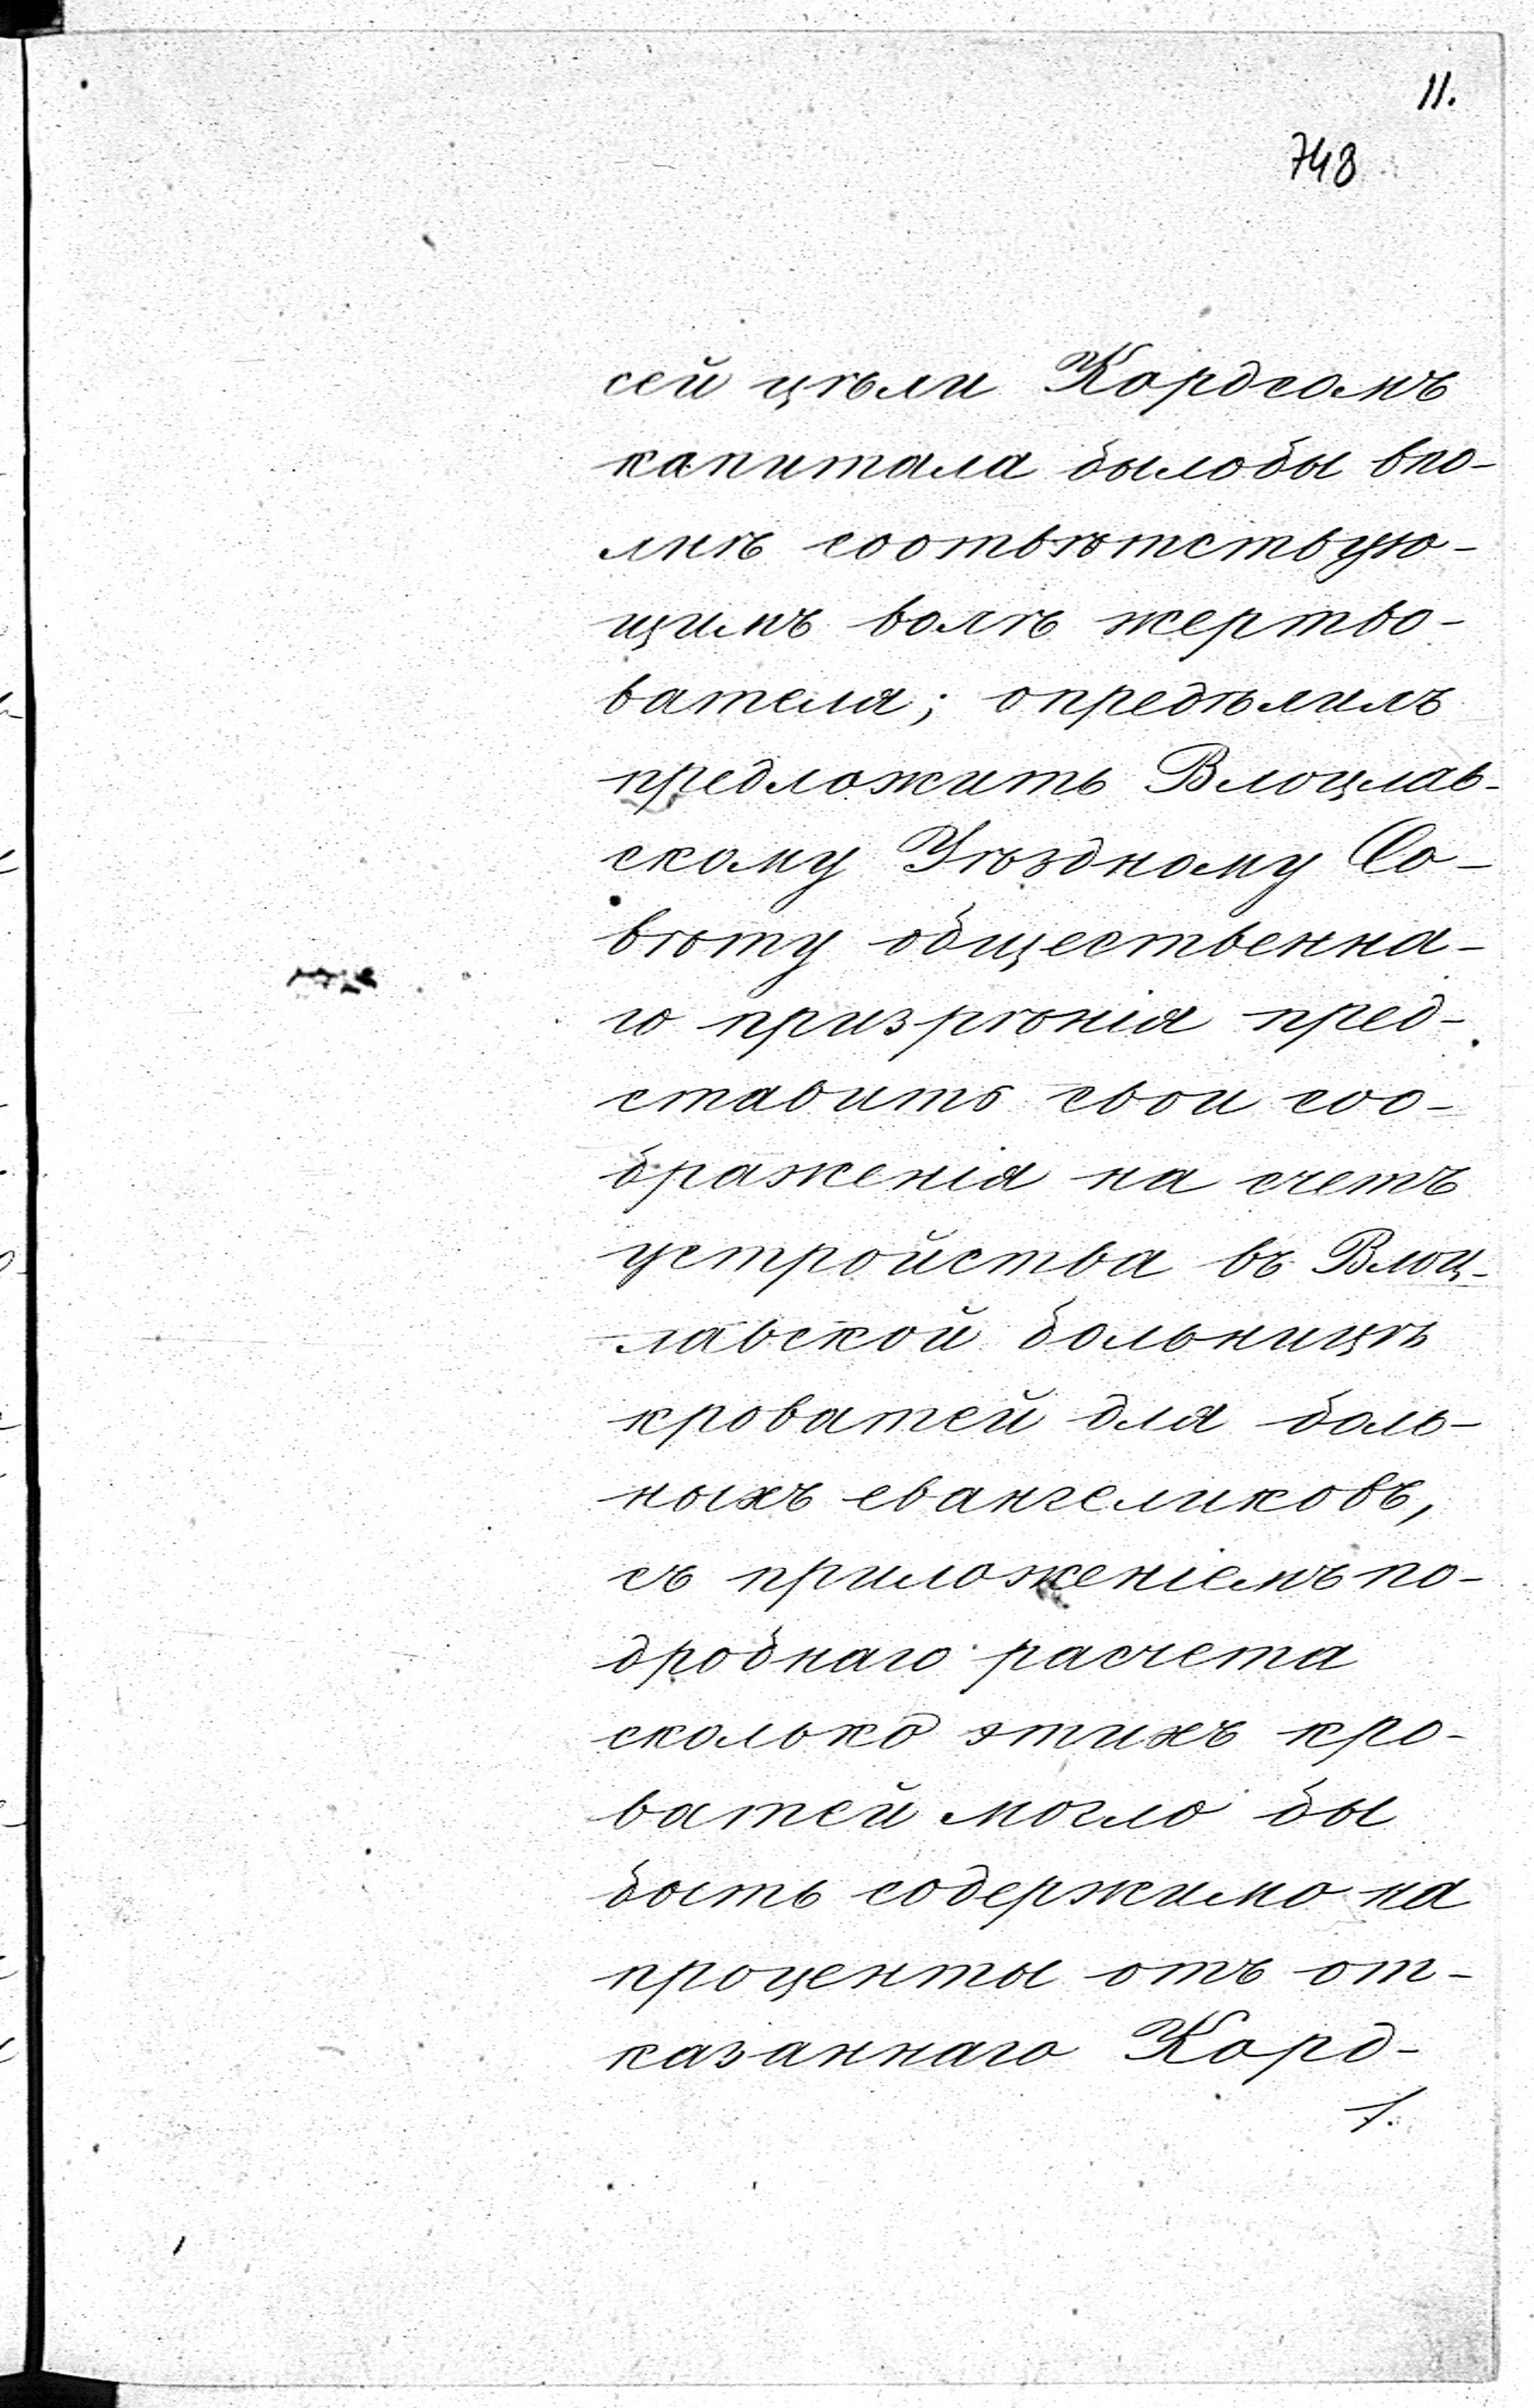 11.
748
сей цѣли Кордсомъ
капитала былобы впо-
лнѣ соотвѣтствую-
щимъ волѣ жертво-
вателя; опредѣлилъ
предложить Влоцлав-
скому Уѣздному Со-
вѣту общественна-
го призрѣнія пред-
ставить свои соо-
браженія на счетъ
устройства въ Влоц-
лавской больницѣ
кроватей для боль-
ныхъ евангеликовъ,
съ приложеніемъ по-
дробнаго расчета
сколько этихъ кро-
ватей могло бы
быть содержимо на
проценты отъ от-
казаннаго Корд-